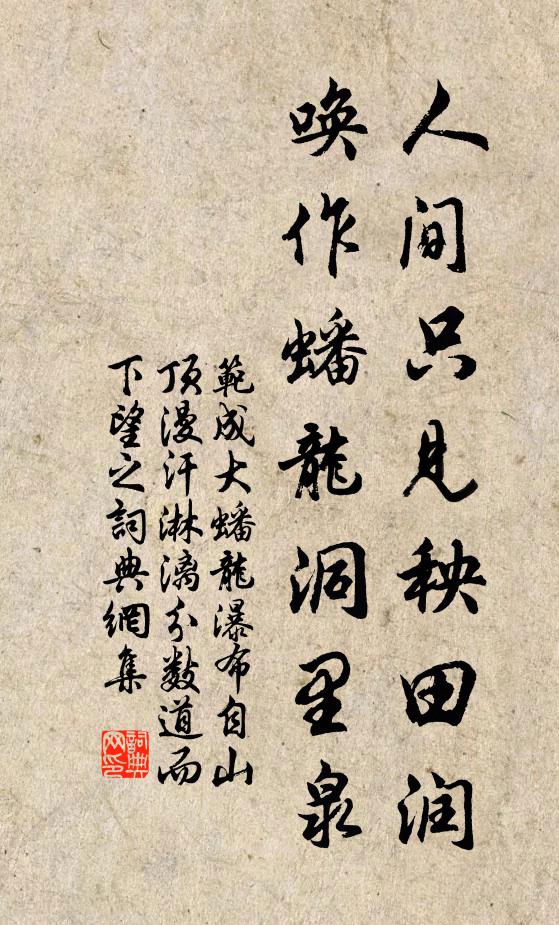 人间只见秧田润
唤作蟠龍洞里泉
範成大蟠龍瀑布自山
顶漫汗淋漓分数道而
下望之詞典網集
詞典
网印